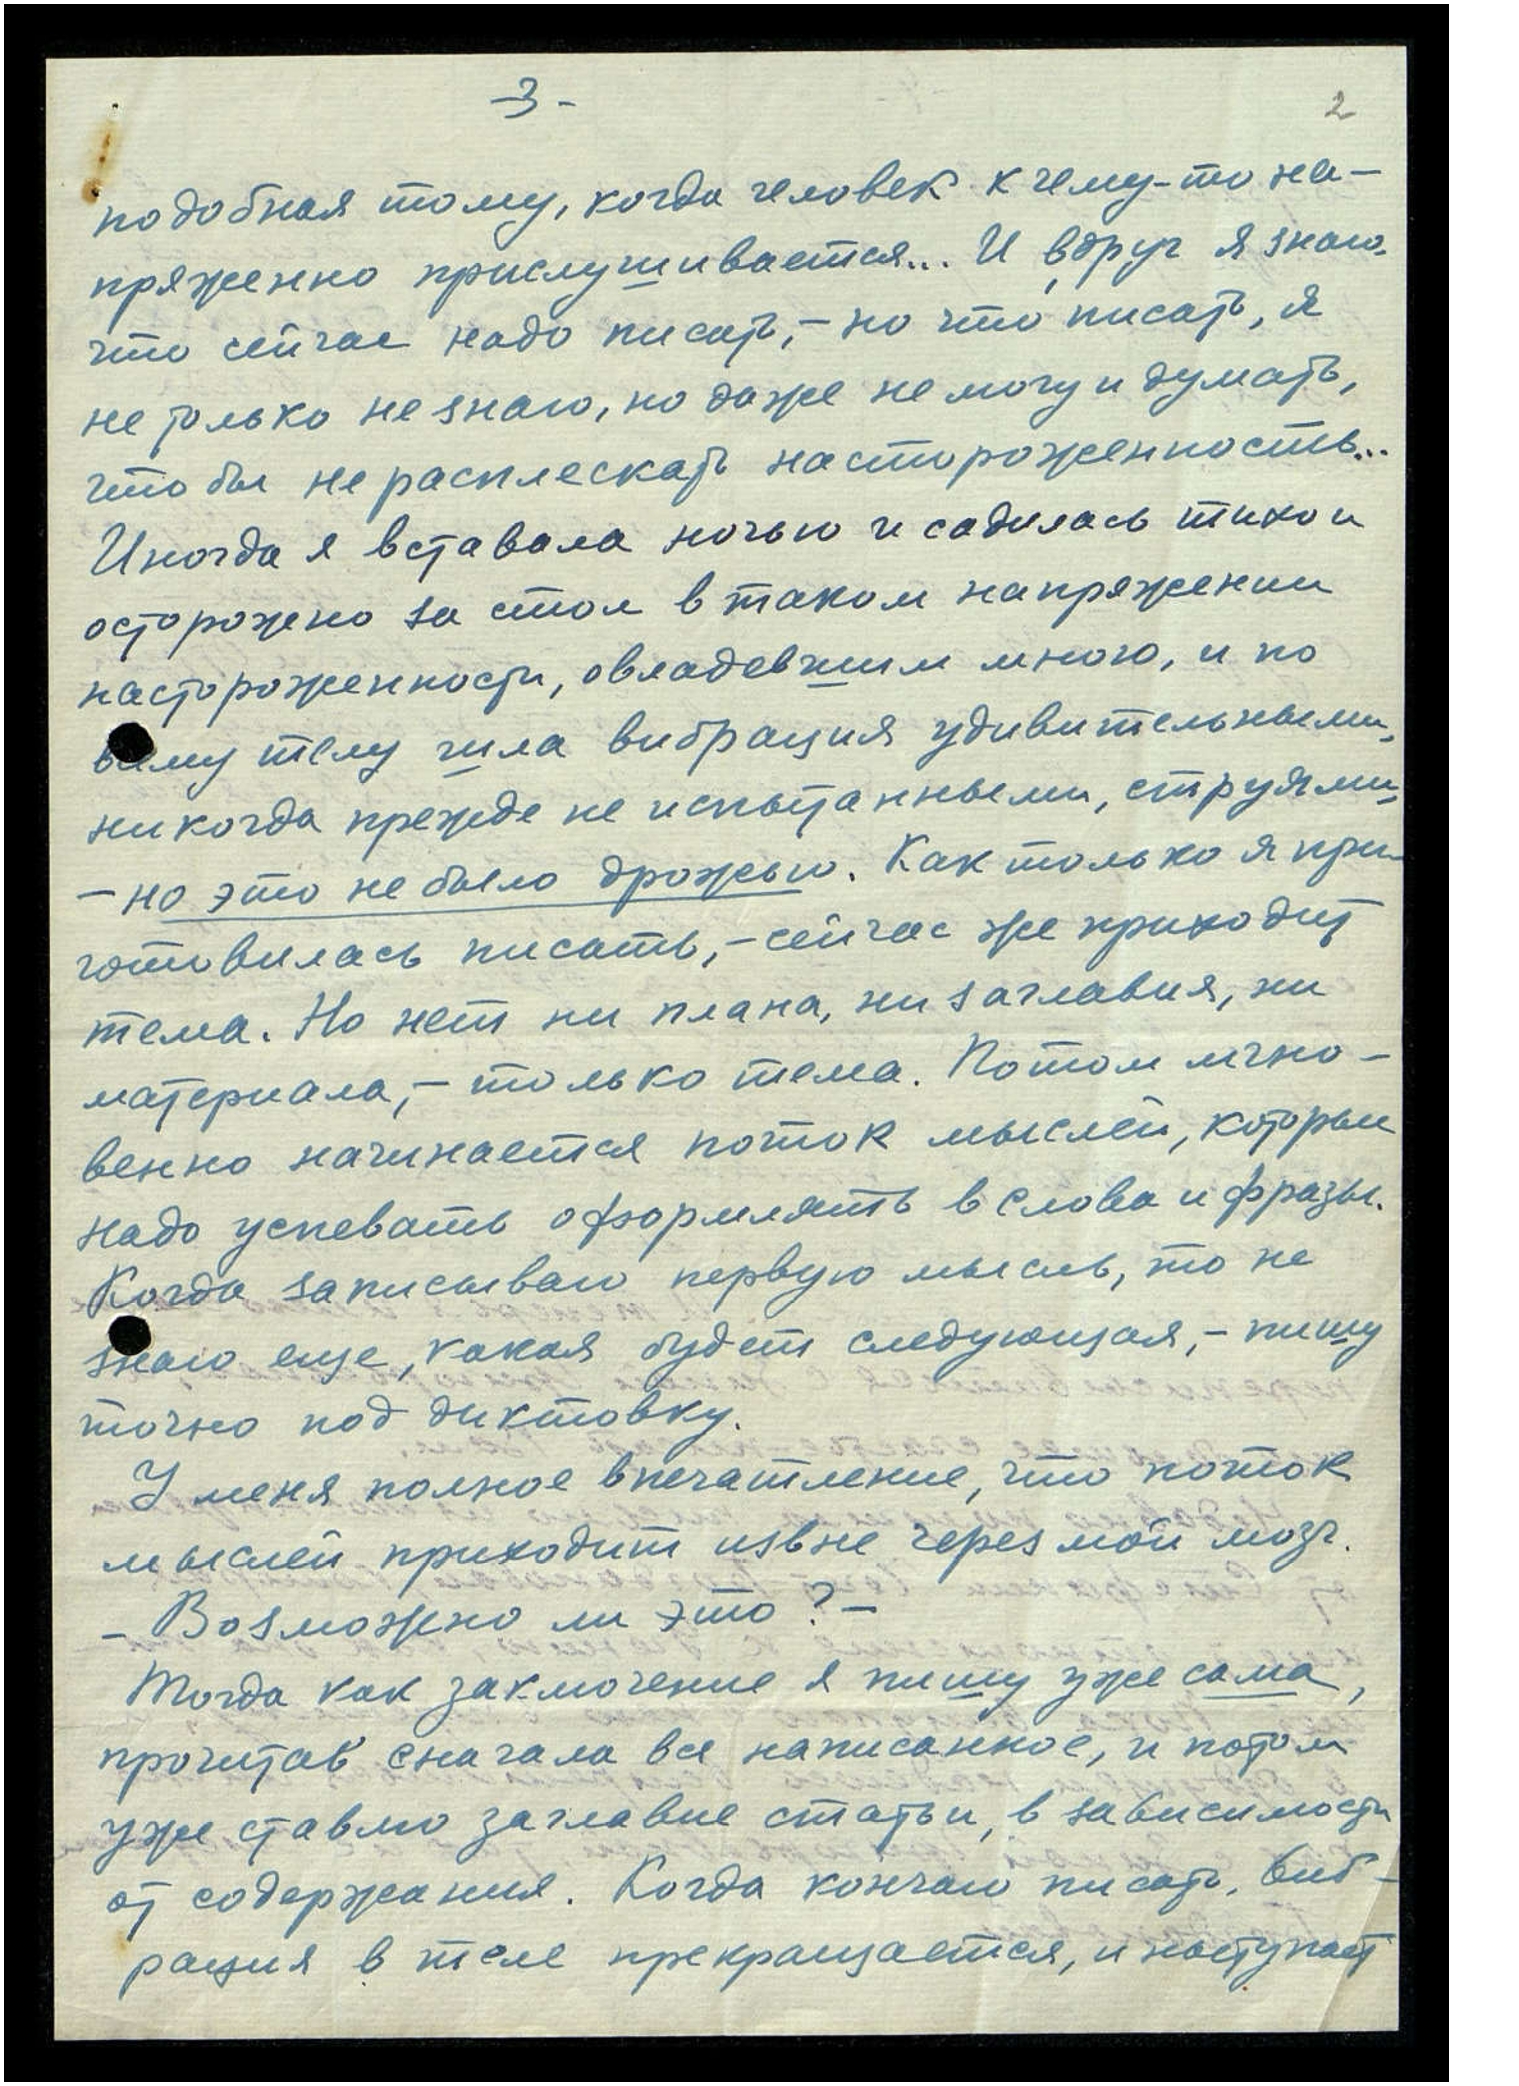 -3-
2
подобная тому, когда человек к чему-то на-
пряженно прислушивается... И вдруг я знаю,
что сейчас надо писать, - но что писать, я
не только не знаю, но даже не могу и думать,
чтобы не расплескать настороженность...
Иногда я вставала ночью и садилась тихо и
осторожно за стол в таком напряжении
настороженности, овладевшим мною, и по
всему телу шла вибрация удивительными,
никогда прежде не испытанными, струями,
- но это не было дрожью. Как только я при-
готовилась писать, - сейчас же приходит
тема. Но нет ни плана, ни заглавия, ни
материала, - только тема. Потом мгно-
венно начинается поток мыслей, которые
надо успевать оформлять в слова и фразы.
Когда записываю первую мысль, то не
знаю еще, какая будет следующая, - пишу
точно под диктовку.
У меня полное впечатление, что поток
мыслей приходит извне через мой мозг.
- Возможно ли это? -
Тогда как заключение я пишу уже сама,
прочитав сначала все написанное, и потом
уже ставлю заглавие статьи, в зависимости
от содержания. Когда кончаю писать, виб-
рация в теле прекращается, и наступает